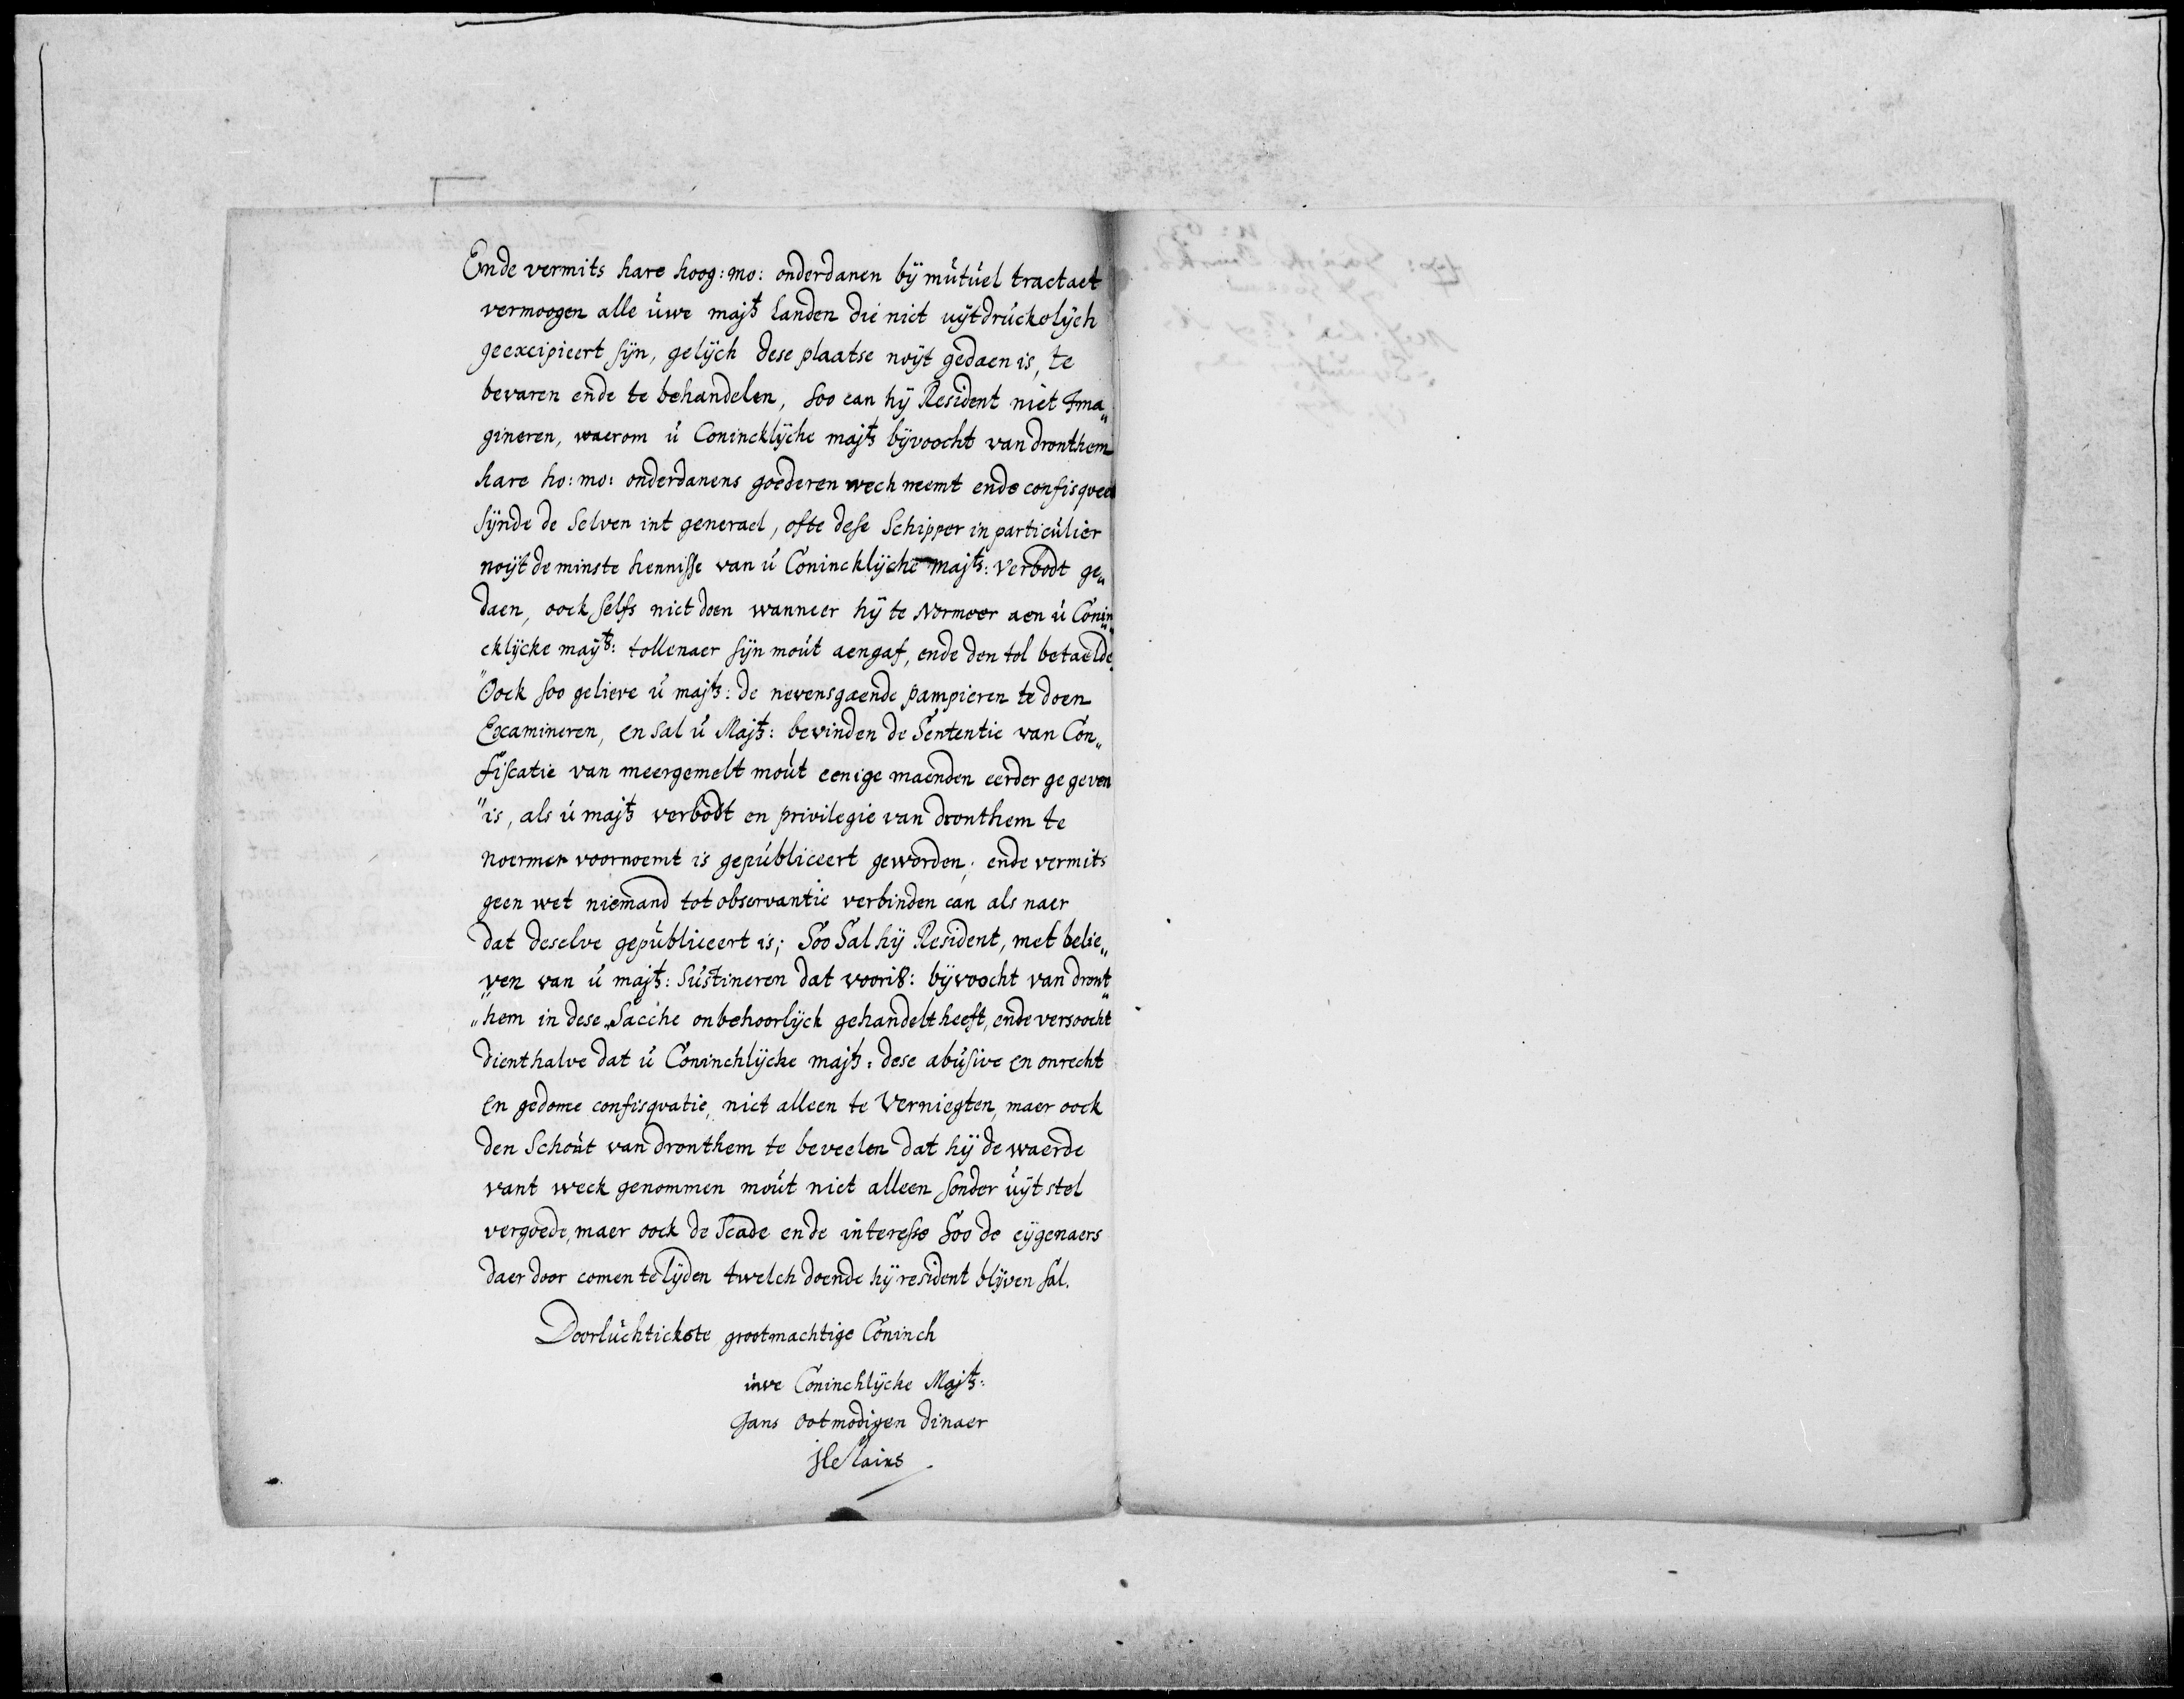 Ende vermits hare hoog: mo: onderdanen bÿ mútúel tractaet
vermoogen alle úwe majts landen die niet uÿtdrúckelÿch
geexcipieert sÿn, gelÿch dese plaatse noÿt gedaen is, te
bevaren ende te behandelen, soo can hÿ Resident niet Ima„
gineren, waerom ú Conincklÿche majts bÿvoocht van dronthem
hare ho: mo: onderdanens goederen wech neemt ende confisqveer
sÿnde de selven int generael, ofte dese Schipper in particúlier
noÿt de minste kennisse van ú Conincklÿche majts: verbodt ge„
daen, oock selfs niet doen wanneer hÿ te Normeer aen ú Conin„
cklÿcke maÿts: tollenaer sÿn moút aengaf, ende den tol betaelde
"Oock soo gelieve ú majts: de nevensgaende pampieren te doen
Examineren, en sal ú Majts: bevinden de Sententie van Con„
fiscatie van meergemelt moút eenige maenden eerder gegeven
"is, als ú majts verbodt en privilegie van dronthem te
noermer voornoemt is gepúbliceert geworden; ende vermits
geen wet niemand tot observantie verbinden can als naer
dat deselve gepúbliceert is; Soo Sal hÿ Resident, met belie„
ven van ú majts: sústineren dat voors: bÿvoocht van dront„
„hem in dese Sacche onbehoorlÿck gehandelt heeft, ende versoocht
dienthalve dat ú Coninchlÿcke majts: dese abúsive en onrecht
en gedome confisqvatie, niet alleen te Verniegten, maer oock
den Schoút van dronthem te beveelen dat hÿ de waerde
vant weck genommen moút niet alleen sonder úÿtstel
vergoede, maer oock de Scade ende interesse Soo de eÿgenaers
daer door comen te lÿden twelch doende hÿ resident blÿven sal.
Doorlúchtichste grootmachtige Coninch
úwe Coninchlÿcke Majts:
Gans ootmodigen dinaer